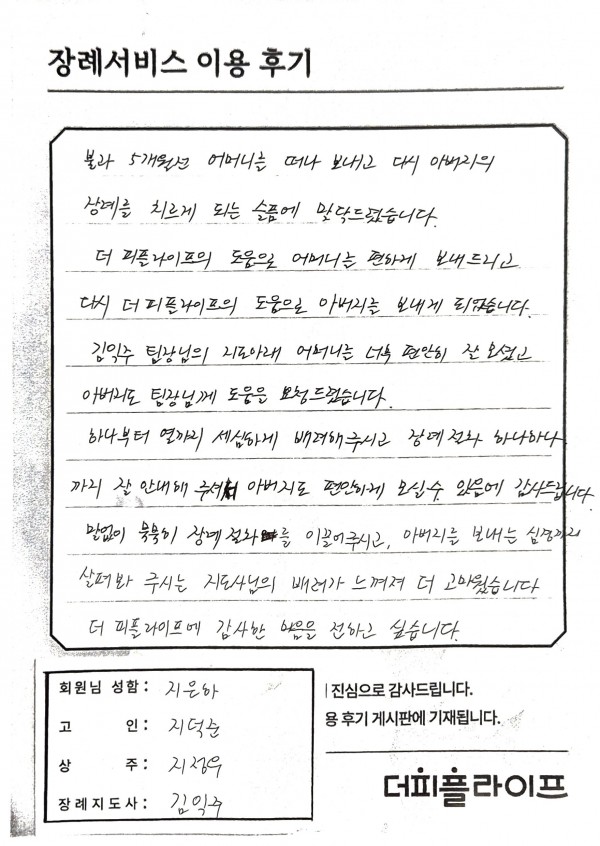 장례서비스 이용 후기
불과 5개월전 어머니를 떠나 보내고 다시 아버지의
장례를 치르게 되는 슬픔에 맞닥드렸습니다.
더 피플라이프의 도움으로 어머니를 편하게 보내드리고
다시 더 피플라이프의 도움으로 아버지를 보내게 되었습니다.
김익주 팀장님의 지도아래 어머니를 너무 편안히 잘 모셨고
아버지도 팀장님께 도움을 요청드렸습니다.
하나부터 열까지 세심하게 배려해주시고 장례절차 하나하나
까지 잘 안내해 주셔서 아버지도 편안하게 모실수 있음에 감사드립니다.
말없이 묵묵히 장례절차를 이끌어주시고, 아버지를 보내는 심정까지
살펴봐 주시는 지도사님의 배려가 느껴져 더 고마웠습니다
더 피플라이프에 감사한 마음을 전하고 싶습니다.
회원님 성함: 지은하
고 인: 지덕순
상 주: 지정우
장례지도사: 김익주
진심으로 감사드립니다.
용 후기 게시판에 기재됩니다.
더피플라이프